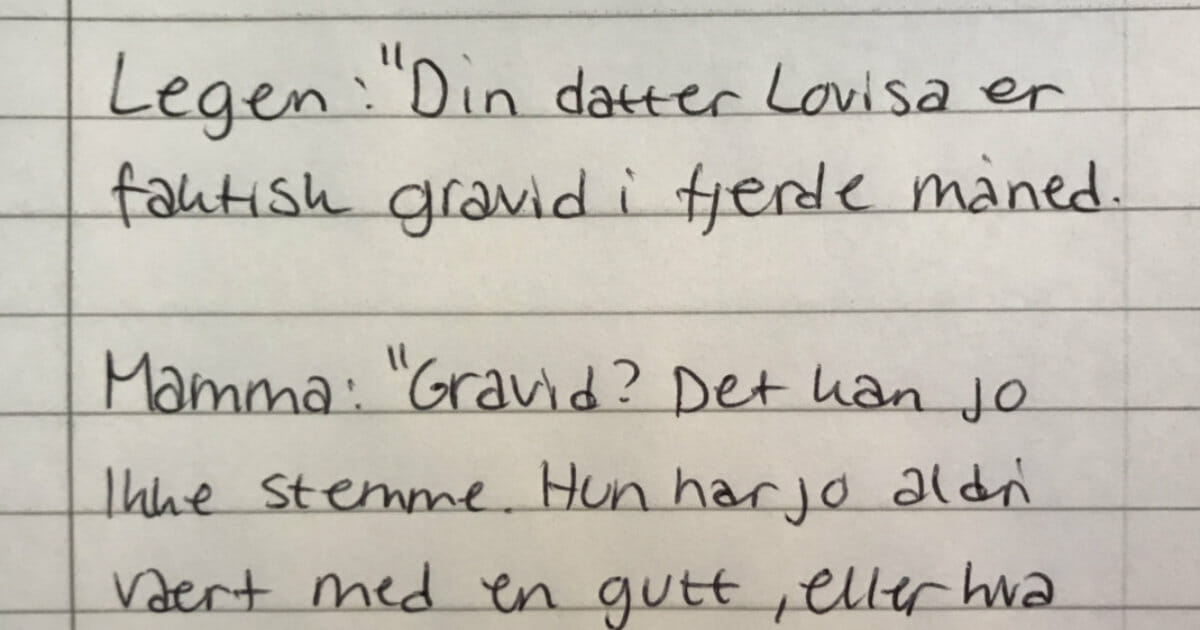 Legen: "Din datter Lovisa er
faktisk gravid i fjerde måned.
Mamma: "Gravid? Det kan jo
ikke stemme. Hun har jo aldri
vært med en gutt, eller hva